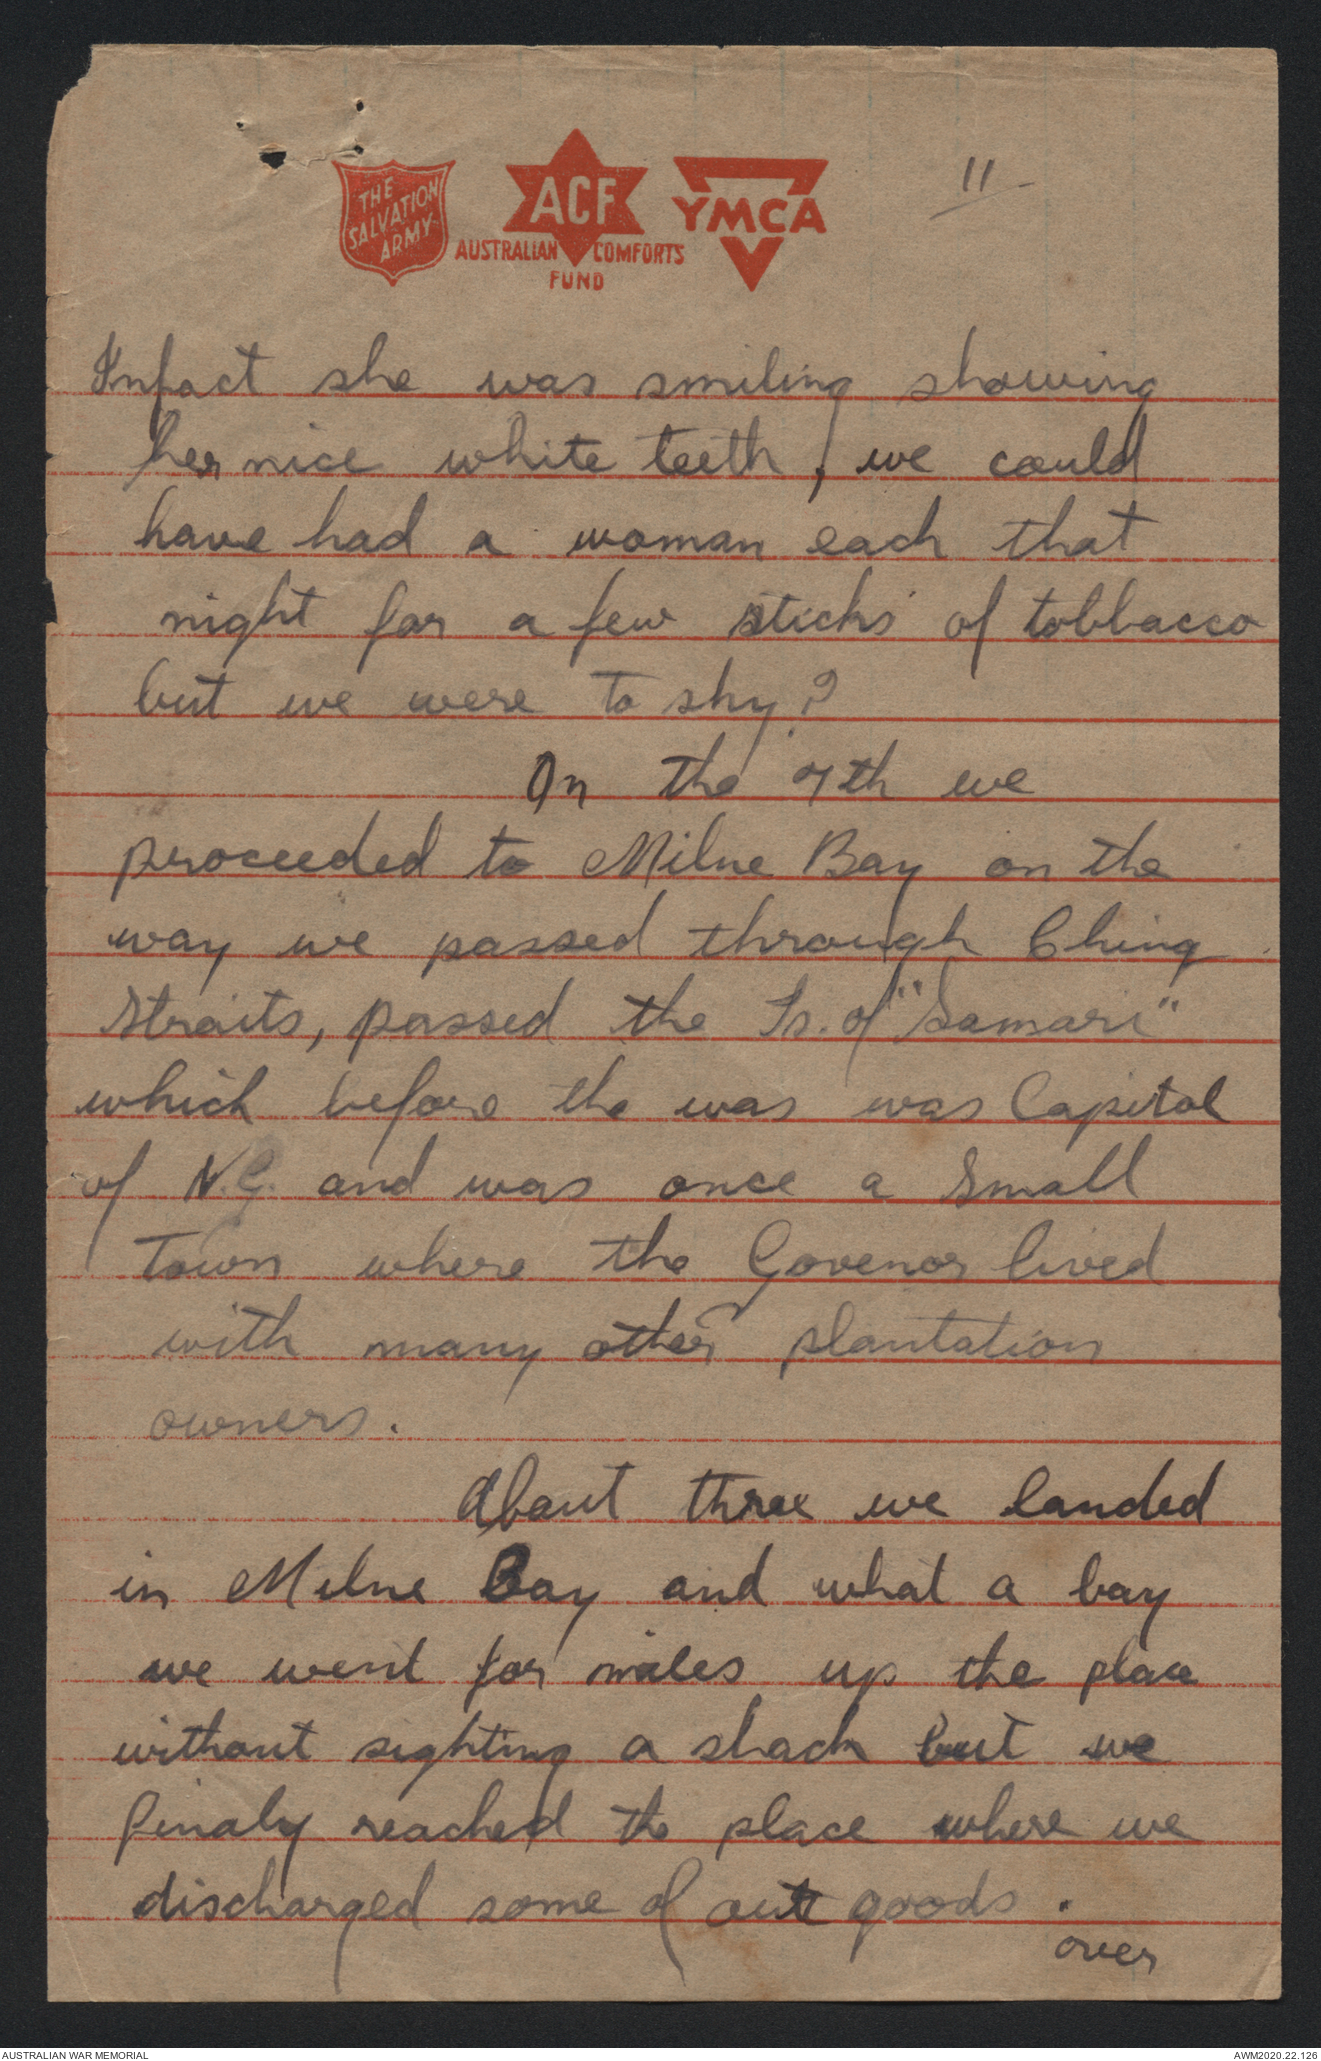 11
THE
SALVATION
ARMY
ACF
AUSTRALIAN COMFORTS
FUND
YMCA
Infact she was smiling showing
her nice white teeth, we could
have had a woman each that
night for a few sticks of tobbacco
but we were to shy?
On the 7th we
proceeded to Milne Bay on the
way we passed through Ching
Straits, passed the Is. of "Samari"
which before the was was Capital
of N.G. and was once a small
Town where the Govenor lived
with many other plantation
owners.
About three we landed
in Milne Bay and what a bay
we went for miles up the place
without sighting a shack but we
finaly reached the place where we
discharged some of out goods.
over
AUSTRALIAN WAR MEMORIAL
AWM2020.22.126